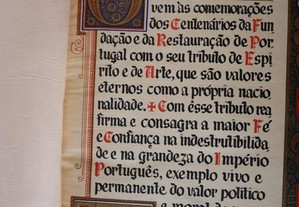 vem às comemorações
dos Centenários da Fun
dação e da Restauração de Por
tugal com o seu tributo de Espí
rito e de Arte, que são valores
eternos como a própria nacio
nalidade. Com êsse tributo rea
firma e consagra a maior Fé
e Confiança na indestrutibilida
de e na grandeza do Império
Português, exemplo vivo e
permanente do valor político
e moral